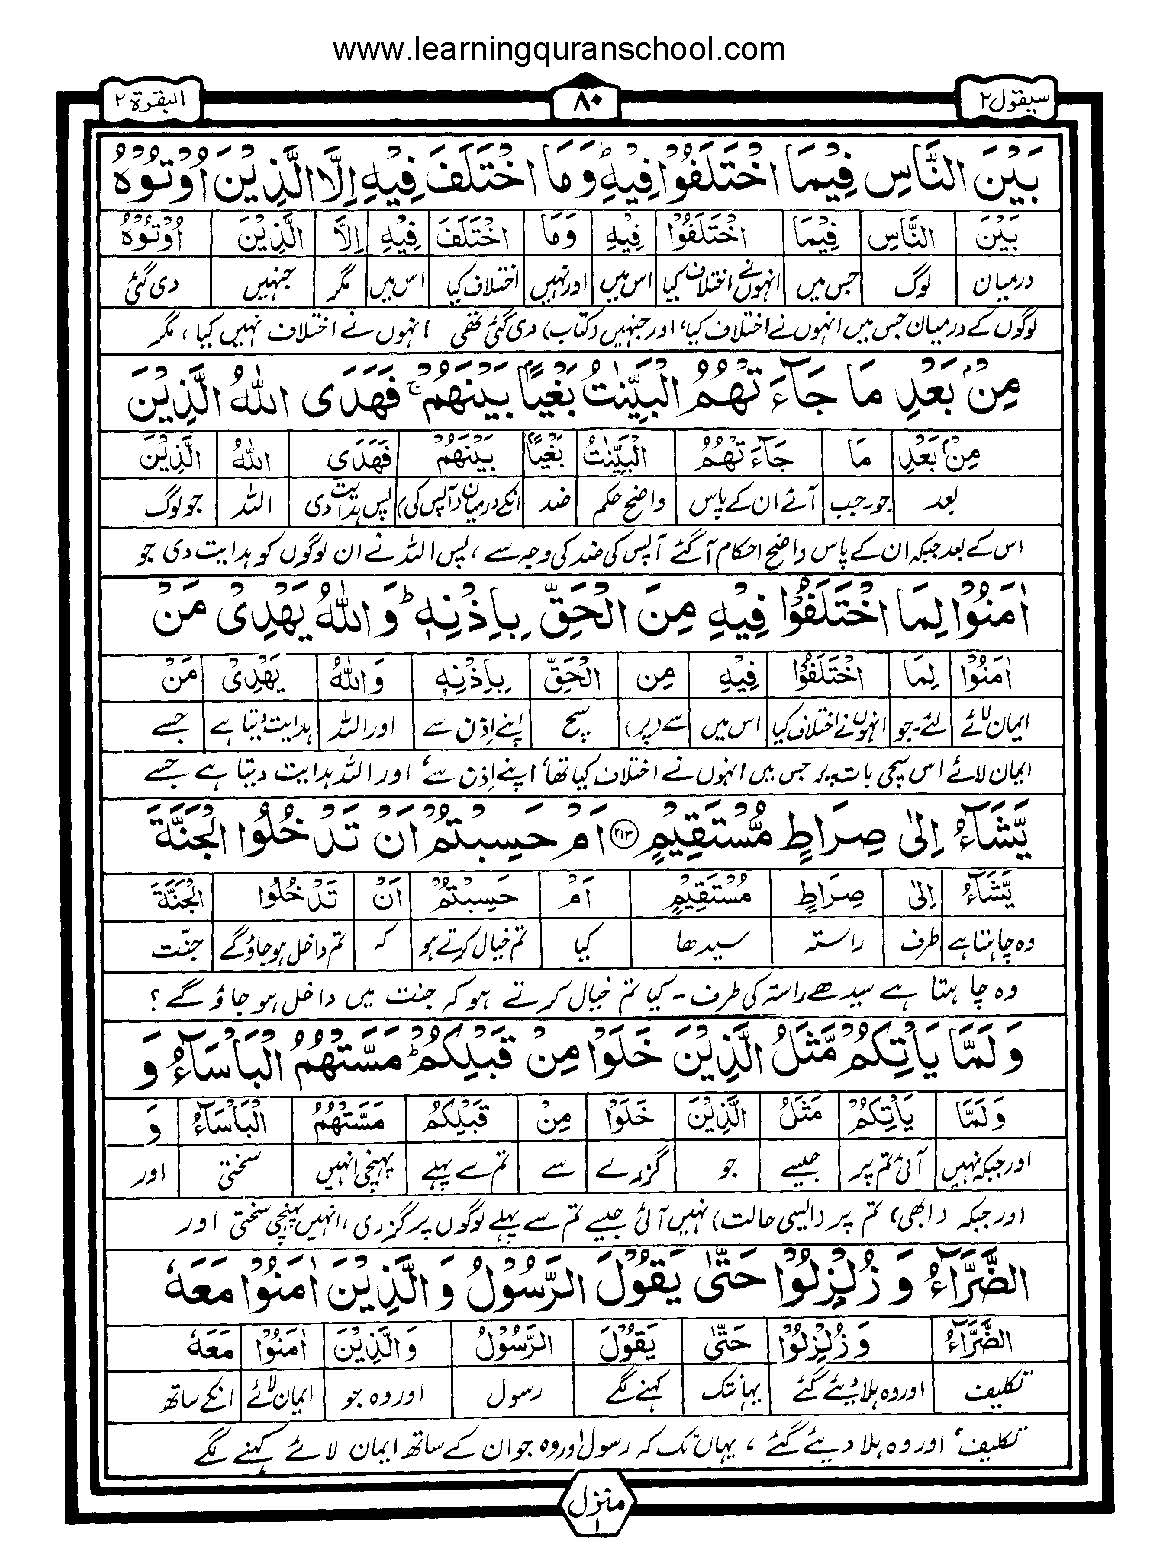 www.learningquranschool.com
سیقول ۲
۸۰
البقرة ۲
بَیْنَ النَّاسِ فِیْمَا اخْتَلَفُوْا فِیْهِ ؕ وَمَا اخْتَلَفَ فِیْهِ اِلَّا الَّذِیْنَ اُوْتُوْهُ
بَیْنَ النَّاسِ فِیْمَا اخْتَلَفُوْا فِیْهِ وَمَا اخْتَلَفَ فِیْهِ اِلَّا الَّذِیْنَ اُوْتُوْهُ
درمیان لوگ جس میں انہوں نے اختلاف کیا اس میں اور نہیں اختلاف کیا اس میں مگر جنہیں دی گئی
لوگوں کے درمیان جس میں انہوں نے اختلاف کیا، اور جنہیں (کتاب) دی گئی تھی انہوں نے اختلاف نہیں کیا، مگر
مِنْۢ بَعْدِ مَا جَآءَتْهُمُ الْبَیِّنٰتُ بَغْیًۢا بَیْنَهُمْ ۚ فَهَدَی اللّٰهُ الَّذِیْنَ
مِنْۢ بَعْدِ مَا جَآءَتْهُمُ الْبَیِّنٰتُ بَغْیًۢا بَیْنَهُمْ فَهَدَی اللّٰهُ الَّذِیْنَ
بعد جو۔جب آئے ان کے پاس واضح حکم ضد انکے درمیان (آپس کی) پس ہدایت دی اللہ جو لوگ
اس کے بعد جبکہ ان کے پاس واضح احکام آگئے آپس کی ضد کی وجہ سے، پس اللہ نے ان لوگوں کو ہدایت دی جو
اٰمَنُوْا لِمَا اخْتَلَفُوْا فِیْهِ مِنَ الْحَقِّ بِاِذْنِهٖ ؕ وَاللّٰهُ یَهْدِیْ مَنْ
اٰمَنُوْا لِمَا اخْتَلَفُوْا فِیْهِ مِنَ الْحَقِّ بِاِذْنِهٖ وَاللّٰهُ یَهْدِیْ مَنْ
ایمان لائے لئے۔جو انہوں نے اختلاف کیا اس میں سے (پر) سچ اپنے اذن سے اور اللہ ہدایت دیتا ہے جسے
ایمان لائے اس سچی بات پر جس میں انہوں نے اختلاف کیا تھا، اپنے اذن سے، اور اللہ ہدایت دیتا ہے جسے
یَّشَآءُ اِلٰی صِرَاطٍ مُّسْتَقِیْمٍ ﴿۲۱۳﴾ اَمْ حَسِبْتُمْ اَنْ تَدْخُلُوا الْجَنَّةَ
یَّشَآءُ اِلٰی صِرَاطٍ مُّسْتَقِیْمٍ اَمْ حَسِبْتُمْ اَنْ تَدْخُلُوا الْجَنَّةَ
وہ چاہتا ہے طرف راستہ سیدھا کیا تم خیال کرتے ہو کہ تم داخل ہو جاؤ گے جنت
وہ چاہتا ہے سیدھے راستہ کی طرف - کیا تم خیال کرتے ہو کہ جنت میں داخل ہو جاؤ گے؟
وَلَمَّا یَاْتِكُمْ مَّثَلُ الَّذِیْنَ خَلَوْا مِنْ قَبْلِكُمْ ؕ مَسَّتْهُمُ الْبَاْسَآءُ وَ
وَلَمَّا یَاْتِكُمْ مَثَلُ الَّذِیْنَ خَلَوْا مِنْ قَبْلِكُمْ مَسَّتْهُمُ الْبَاْسَآءُ وَ
اور جبکہ نہیں آئی تم پر جیسے جو گزرے سے تم سے پہلے پہنچی انہیں سختی اور
اور جبکہ (ابھی) تم پر (ایسی حالت) نہیں آئی جیسے تم سے پہلے لوگوں پر گزری، انہیں پہنچی سختی اور
الضَّرَّآءُ وَ زُلْزِلُوْا حَتّٰی یَقُوْلَ الرَّسُوْلُ وَ الَّذِیْنَ اٰمَنُوْا مَعَهٗ
الضَّرَّآءُ وَ زُلْزِلُوْا حَتّٰی یَقُوْلَ الرَّسُوْلُ وَالَّذِیْنَ اٰمَنُوْا مَعَهٗ
تکلیف اور وہ ہلا دیئے گئے یہانتک کہنے لگے رسول اور وہ جو ایمان لائے انکے ساتھ
تکلیف، اور وہ ہلا دیئے گئے، یہاں تک کہ رسول اور وہ جو ان کے ساتھ ایمان لائے کہنے لگے
منزل ۱